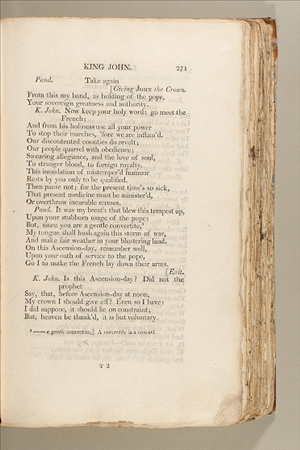 KING JOHN. 271
Pand. Take again
[Giving JOHN the Crown.
From this my hand, as holding of the pope,
Your sovereign greatness and authority.
K. John. Now keep your holy word: go meet the
French;
And from his holiness use all your power
To stop their marches, 'fore we are inflam'd.
Our discontented counties do revolt;
Our people quarrel with obedience;
Swearing allegiance, and the love of soul,
To stranger blood, to foreign royalty.
This inundation of mistemper'd humour
Rests by you only to be qualified.
Then pause not; for the present time's so sick,
That present medicine must be minister'd,
Or overthrow incurable ensues.
Pand. It was my breath that blew this tempest up,
Upon your stubborn usage of the pope:
But, since you are a gentle convertite,
My tongue shall hush again this storm of war,
And make fair weather in your blustering land.
On this Ascension-day, remember well,
Upon your oath of service to the pope,
Go I to make the French lay down their arms.
[Exit.
K. John. Is this Ascension-day? Did not the
prophet
Say, that, before Ascension-day at noon,
My crown I should give off? Even so I have:
I did suppose, it should be on constraint;
But, heaven be thank'd, it is but voluntary.
a gentle convertite,] A convertite is a convert.
T 2